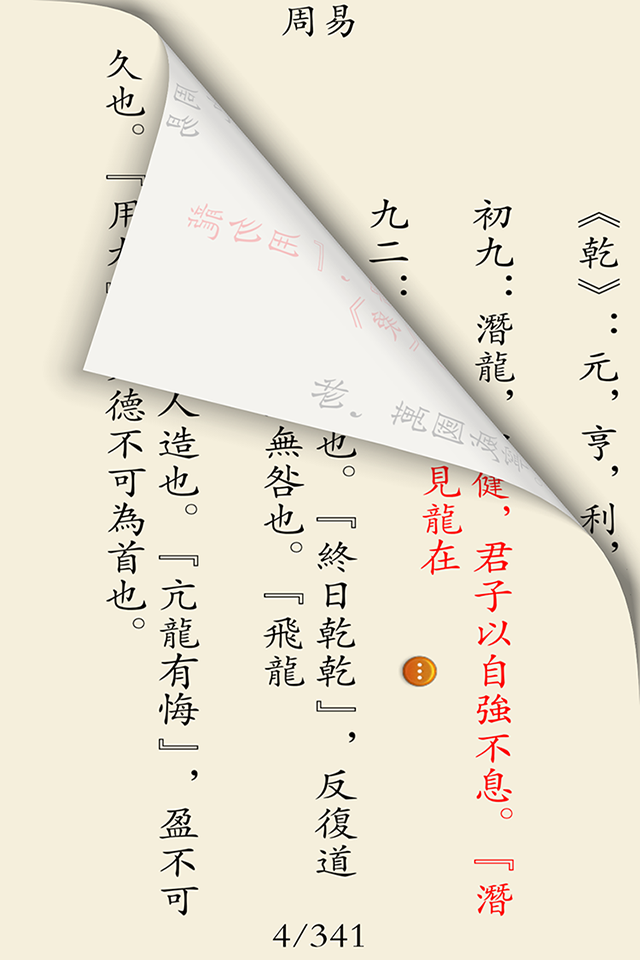 周易
《乾》：元，亨，利，
初九：潛龍，
健，君子以自強不息。『潛
見龍在
九二：
也。『終日乾乾』，反復道
無咎也。『飛龍
人造也。『亢龍有悔』，盈不可
久也。『用
德不可為首也。
4/341